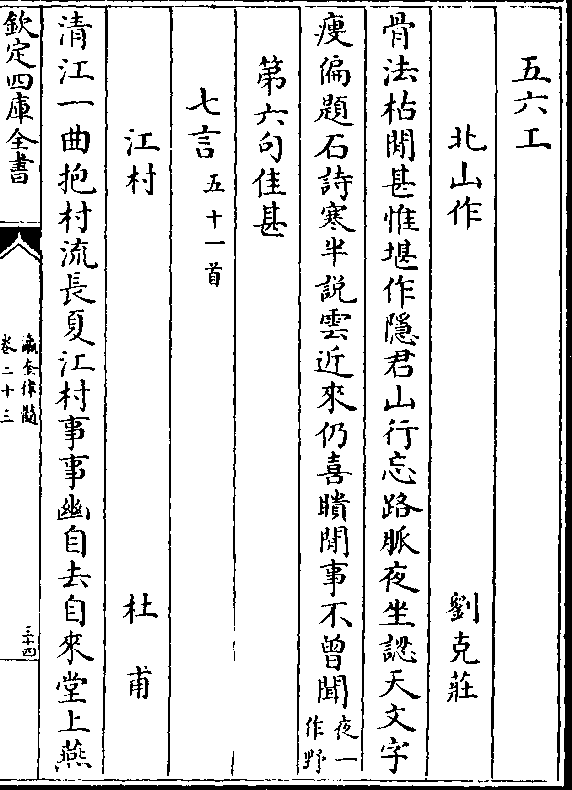 五六工
北山作　劉克莊
骨法枯閒甚惟堪作隱君山行忘路脈夜坐認天文字
瘦偏題石詩寒半説雲近來仍喜聵閒事不曾聞夜一
作野
第六句佳甚
七言五十一首
江村　杜甫
清江一曲抱村流長夏江村事事幽自去自來堂上燕
欽定四庫全書
瀛奎律髓
卷二十三
三十四